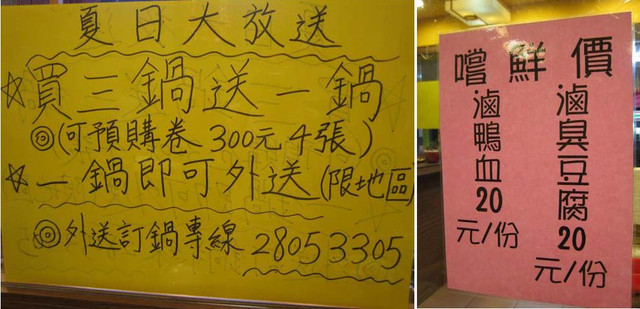 夏日大放送
☆買三鍋送一鍋
◎(可預購卷 300元 4張)
☆一鍋即可外送(限地區)
◎外送訂鍋專線 28053305
嚐鮮價
滷臭豆腐20元/份
滷鴨血20元/份